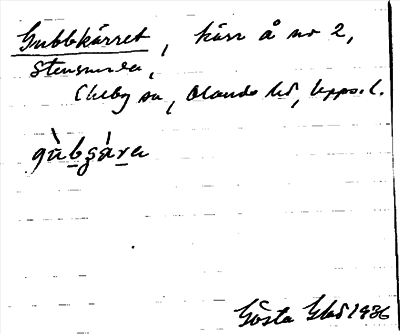 Gubbkärret, kärr å no 2,
Stensunda,
Ekeby sn, Olands hd, Upps. l.
gùbçära
Gösta 1936